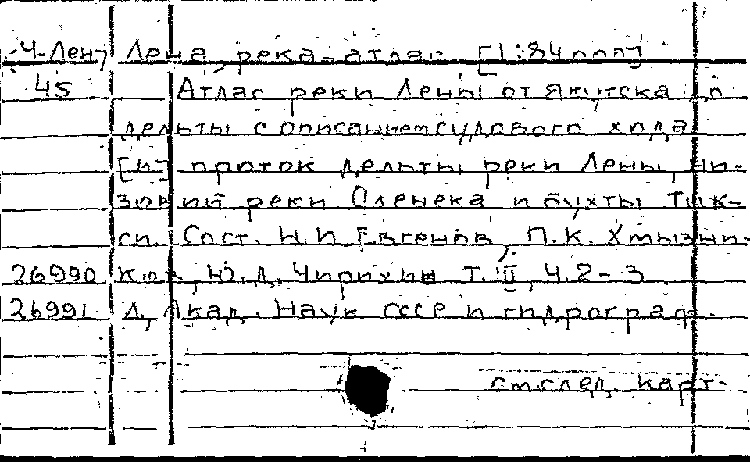 Ч-Лен Лена, река-атлас [1:84000]
45 Атлас реки Лены от Якутска до
дельты с описанием судового хода
[и] проток дельты реки Лены, ни-
зовий реки Оленека и бухты Тик-
си. Сост. Н.И Евгенов, П.К. Хмызни-
26990 ков, Ю.Д. Чирихин Т. II, ч.2-3
26991 Л, Акад. Наук СССР и гидрограф.
см след. карт.